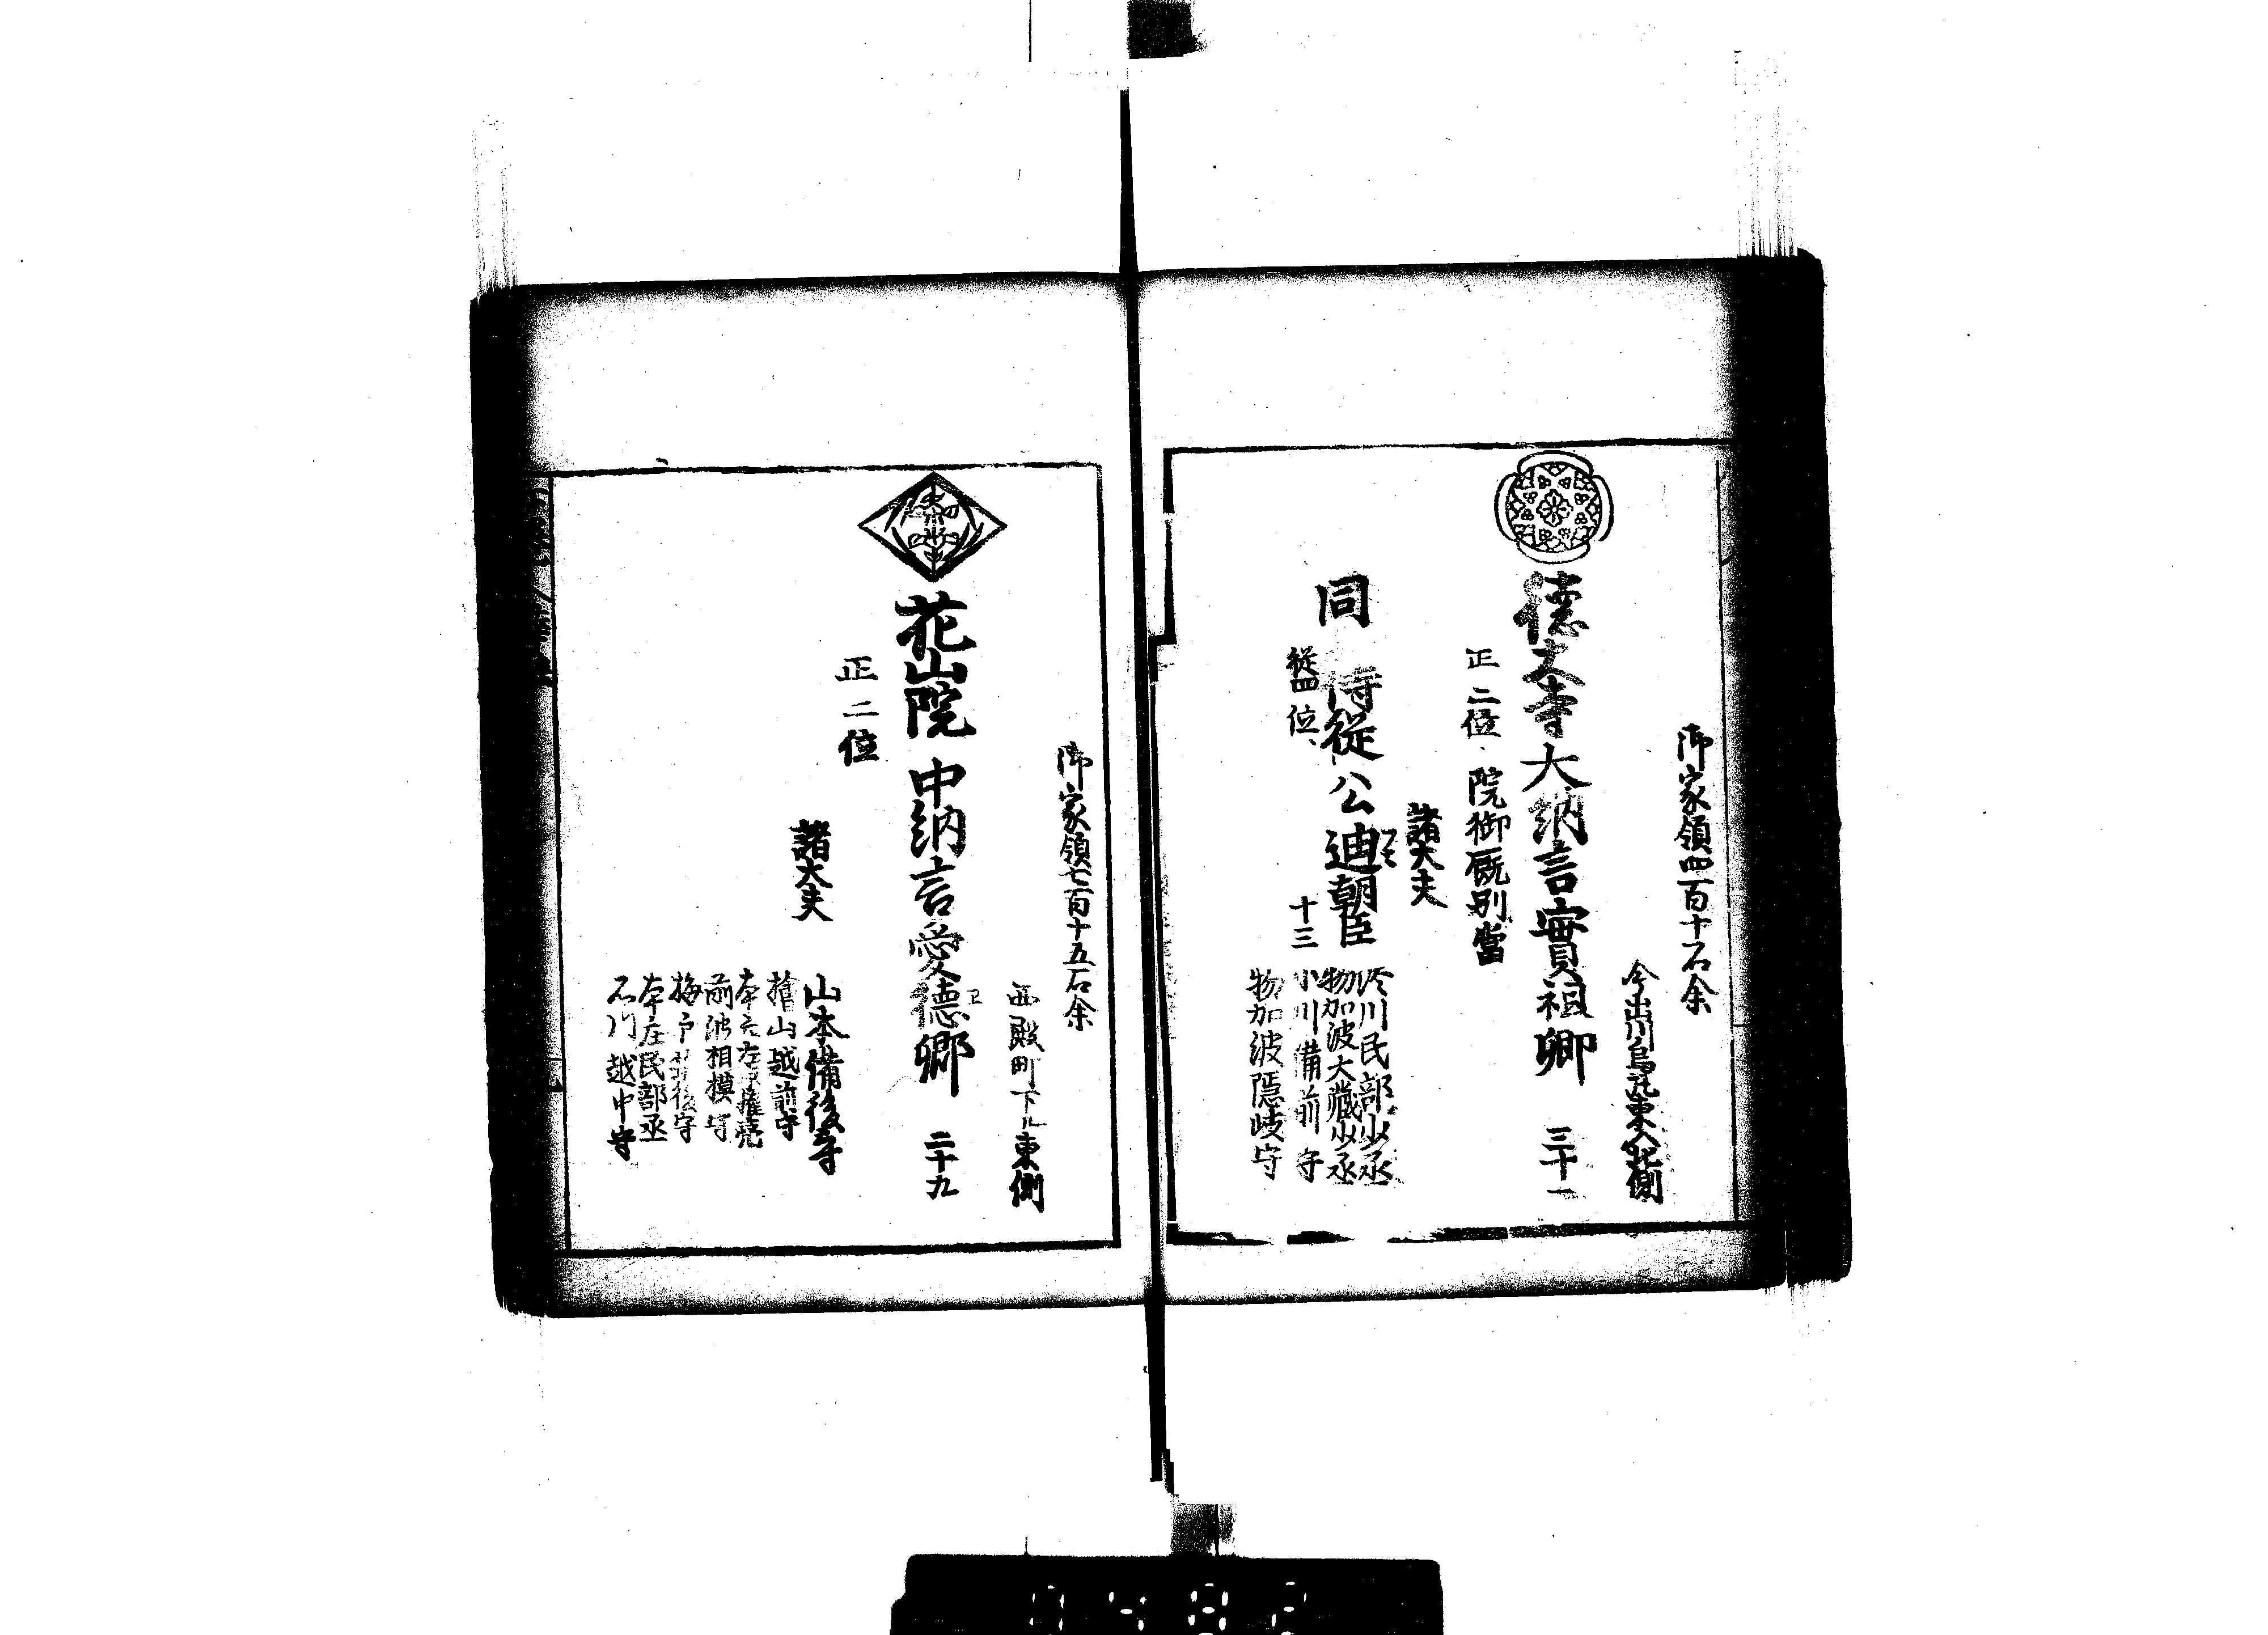 御家領四百十石余
今出川烏丸東入北側
德大寺大納言實祖卿 三十一
正二位 院御厩別當
諸大夫
同 侍從公迪朝臣 十三
從四位
物加波大藏少丞
小川備前守
物加波隱岐守
御家領七百十五石余
西殿町下ル東側
花山院中納言愛德卿 二十九
正二位
諸大夫
山本備後守
檜山越前守
前波相摸守
本庄民部丞
石川越中守